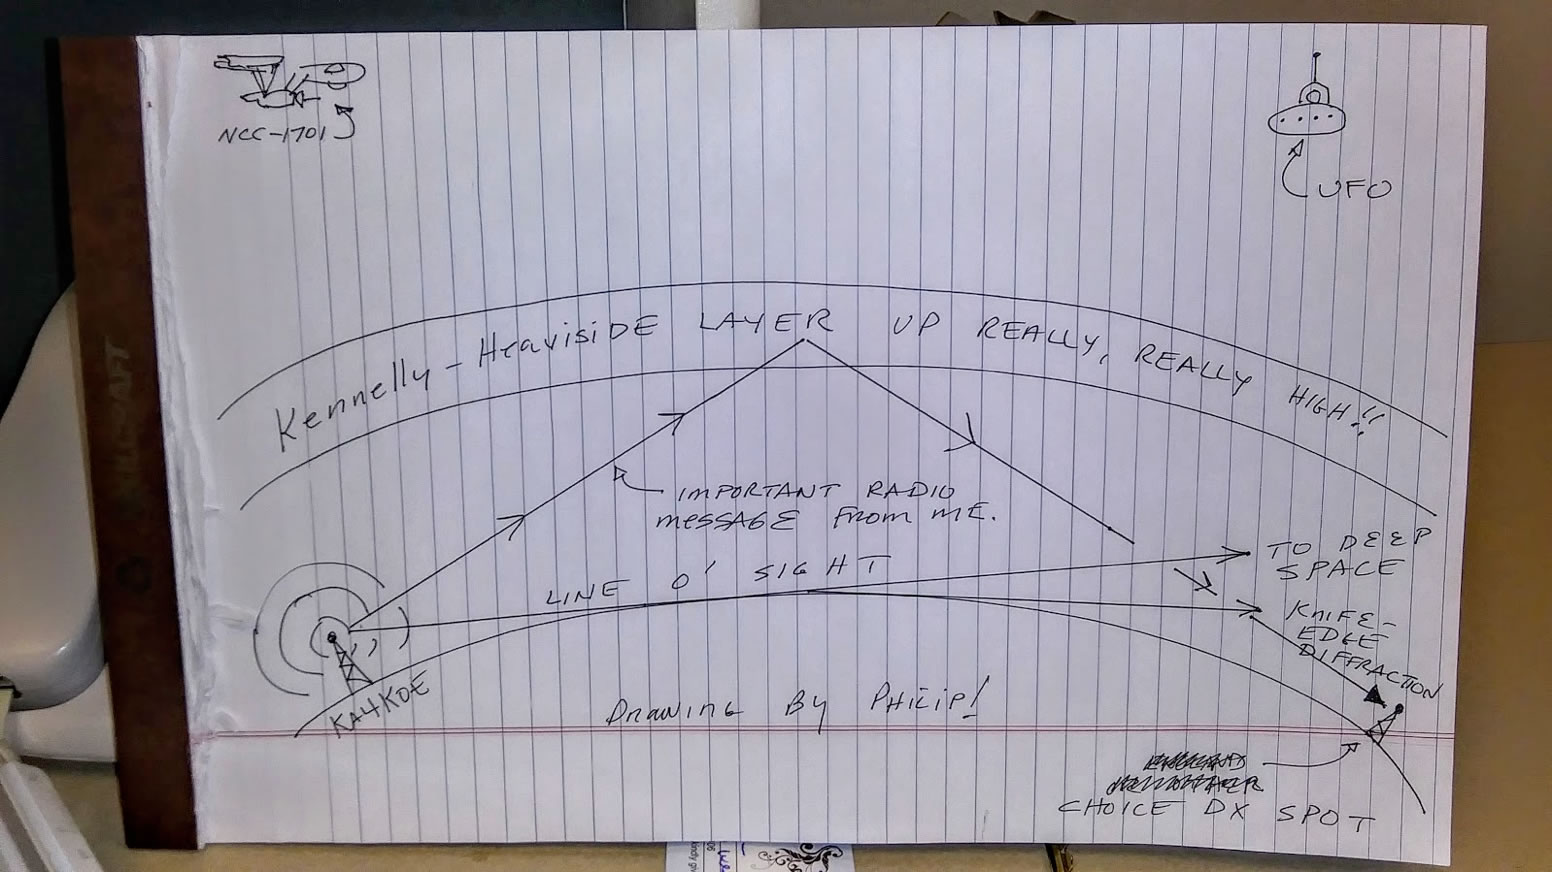 NCC-1701
UFO
Kennelly-Heaviside LAYER UP REALLY, REALLY HIGH!!
IMPORTANT RADIO
MESSAGE FROM ME.
LINE O' SIGHT
TO DEEP
SPACE
KNIFE-
EDGE
DIFFRACTION
KA4KOE
DRAWING BY PHILIP!
CHOICE DX SPOT